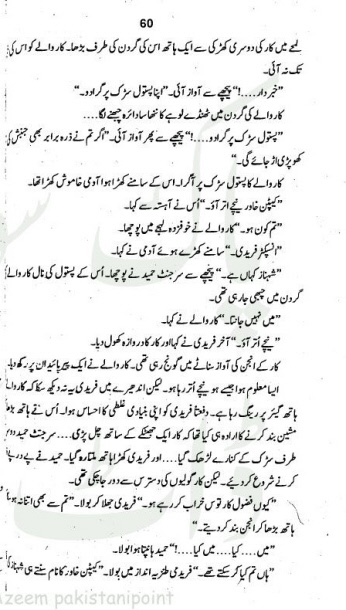 60
لمحے میں کار کی دوسری کھڑکی سے ایک ہاتھ اس کی گردن کی طرف بڑھا۔ کار والے کو اس کی
تک نہ آئی۔
”خبردار....!“ پیچھے سے آواز آئی۔ ”اپنا پستول سڑک پر گرا دو۔“
کار والے کی گردن میں ٹھنڈے لوہے کا ننھا سا دائرہ چبھنے لگا....
”پستول سڑک پر گرا دو....!“ پیچھے سے پھر آواز آئی۔ ”اگر تم نے ذرہ برابر بھی جنبش کی
کھوپڑی اڑ جائے گی۔“
کار والے کا پستول سڑک پر آگرا۔ اس کے سامنے کھڑا ہوا آدمی خاموش کھڑا تھا۔
”کیپٹن خاور نیچے اتر آؤ۔“ اُس نے آہستہ سے کہا۔
”تم کون ہو۔“ کار والے نے خوفزدہ لہجے میں پوچھا۔
”انسپکٹر فریدی۔“ سامنے کھڑے ہوئے آدمی نے کہا۔
”شہناز کہاں ہے۔“ پیچھے سے سرجنٹ حمید نے پوچھا۔ اُس کے پستول کی نال کار والے
گردن میں چبھی جارہی تھی۔
”میں نہیں جانتا۔“ کار والے نے کہا۔
”نیچے اُتر آؤ۔“ آخر فریدی نے کہا اور کار کا دروازہ کھول دیا۔
کار کے انجن کی آواز سناٹے میں گونج رہی تھی۔ کار والے نے ایک پیر پائیدان پر رکھ دیا۔
ایسا معلوم ہوا جیسے وہ نیچے اُتر رہا ہو۔ لیکن اندھیرے میں فریدی یہ نہ دیکھ سکا کہ کار والے
ہاتھ گیئر پر رینگ رہا ہے۔ دفعتاً فریدی کو اپنی بنیادی غلطی کا احساس ہوا۔ اُس نے ہاتھ بڑھا
مشین بند کرنے کا ارادہ ہی کیا تھا کہ کار ایک جھٹکے کے ساتھ چل پڑی.... سرجنٹ حمید دوسر
طرف سڑک کے کنارے لڑھک گیا.... اور فریدی کھڑا ہاتھ ملتا رہ گیا۔ حمید نے پے در پے
کرنے شروع کردیئے۔ لیکن کار گولیوں کی دسترس سے دور جاچکی تھی۔
”کیوں فضول کارتوس خراب کر رہے ہو۔“ فریدی جھلا کر بولا۔ ”تم سے بھی اتنا نہ ہو
ہاتھ بڑھا کر انجن بند کردیتے۔“
”میں.... کیا.... میں کیا....!“ حمید ہانپتا ہوا بولا۔
”ہاں تم کیا کرسکتے تھے۔“ فریدی طنزیہ انداز میں بولا۔ ”کیپٹن خاور کا نام سنتے ہی شہناز
Azeem pakistanipoint